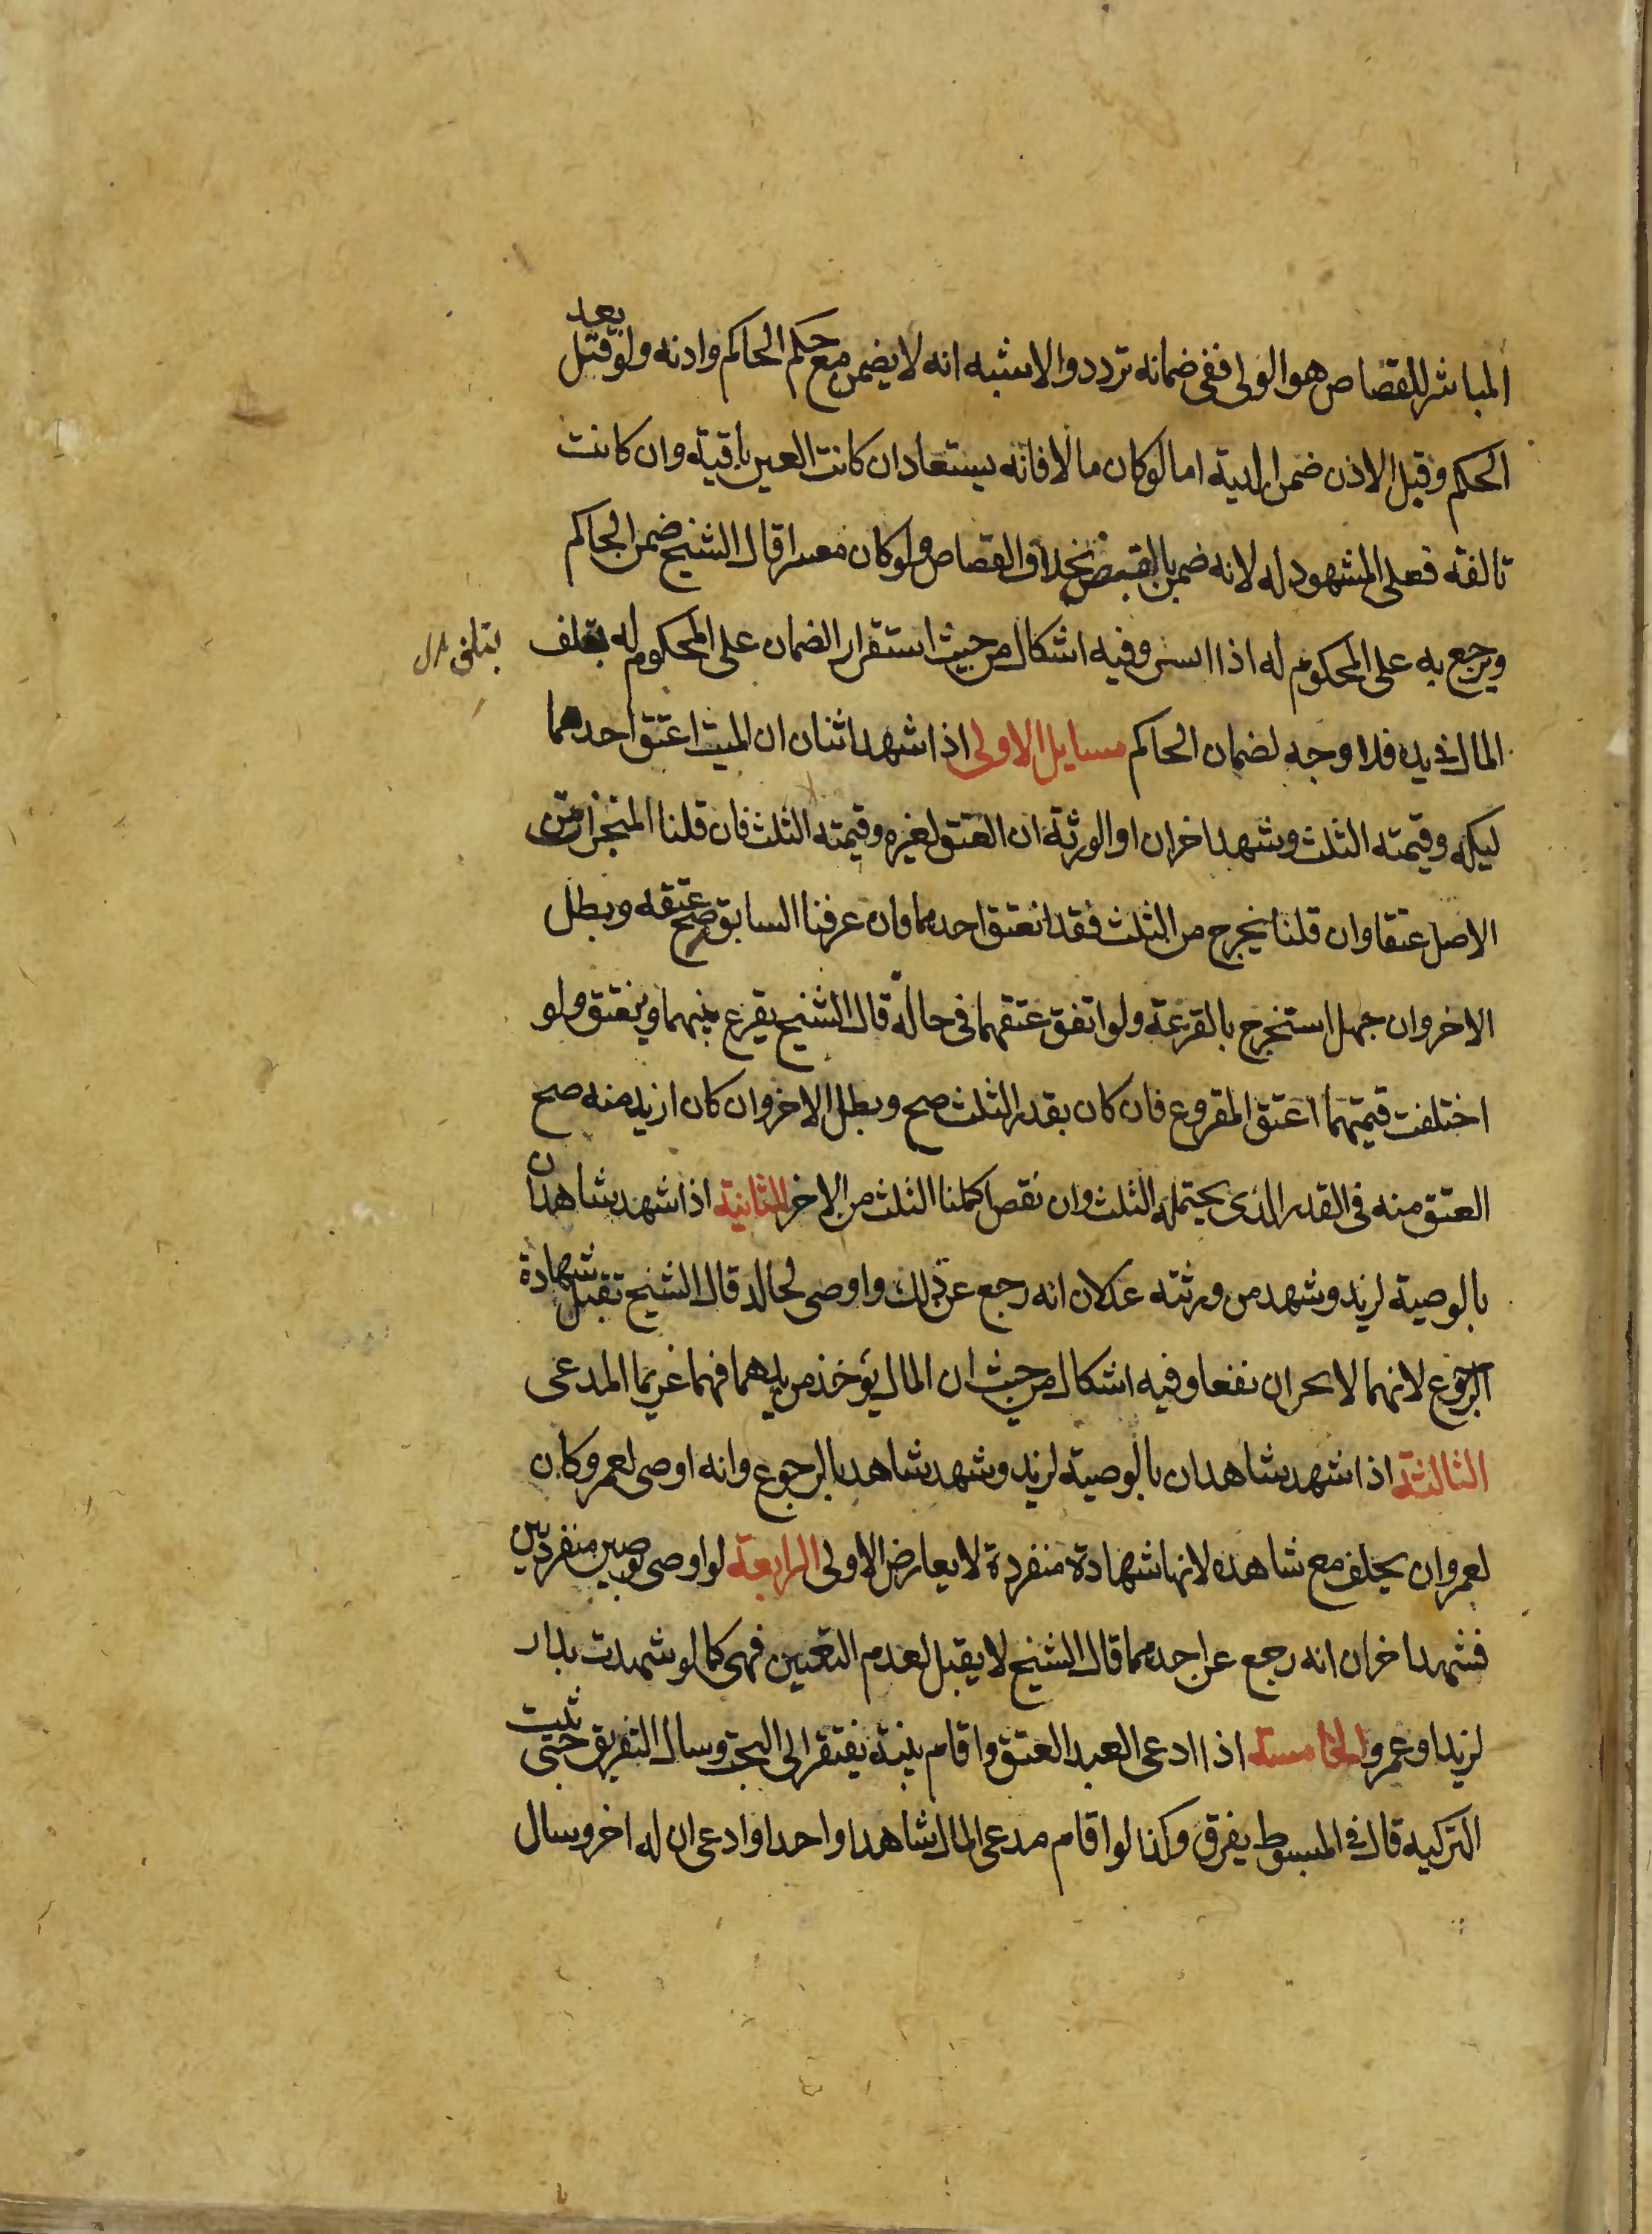 المباشر للقصاص هو الولى ففى ضمانه تردد والاشبه انه لا يضمن مع حكم الحاكم واذنه ولو قتل بعد
الحكم وقبل الاذن ضمن الدية اما لو كان مالا فانه يستعاد ان كانت العين باقية وان كانت
تالفة فعلى المشهود له لانه ضمن بالقبض بخلاف القصاص ولو كان معسرا قال الشيخ ضمن الحاكم
ويرجع به على المحكوم له اذا ايسر وفيه اشكال من حيث استقرار الضمان على المحكوم له بتلف
بتلف
المال فى يده فلا وجه لضمان الحاكم مسايل الاولى اذا شهد اثنان ان الميت اعتق احد مما
ليكه وقيمته الثلث وشهد اخران او الورثة ان العتق لغيره وقيمته الثلث فان قلنا المنجزات من
الاصل عتقا وان قلنا يخرج من الثلث فقد انعتق احدهما وان عرفنا السابق صح عتقه وبطل
الاخر وان جهل استخرج بالقرعة ولو اتفق عتقهما فى حالة قال الشيخ يقرع بينهما وينعتق ولو
اختلفت قيمتهما اعتق المقروع فان كان بقدر الثلث صح وبطل الاخر وان كان ازيد منه صح
العتق منه فى القدر الذى يحتمله الثلث وان نقص اكملنا الثلث من الاخر الثانية اذا شهد شاهدان
بالوصية لزيد وشهد من ورثته عدلان انه رجع عن ذلك واوصى لخالد قال الشيخ تقبل شهادة
الرجوع لانهما لا يجران نفعا وفيه اشكال من حيث ان المال يؤخذ من يدهما فهما غريما المدعى
الثالثة اذا شهد شاهدان بالوصية لزيد وشهد شاهد بالرجوع وانه اوصى لعمرو كان
لعمرو ان يحلف مع شاهده لانها شهادة منفردة لا يعارض الاولى الرابعة لو اوصى بوصيتين منفردتين
فشهد اخران انه رجع عن احدهما قال الشيخ لا يقبل لعدم التعيين فهى كما لو شهدت بدار
لزيد او عمرو الخامسة اذا ادعى العبد العتق واقام بينة يفتقر الى البحث وسال التفريق حتى تثبت
التزكيه قال فى المبسوط يفرق وكذا لو اقام مدعى المال شاهدا واحدا وادعى ان له اخر وسال